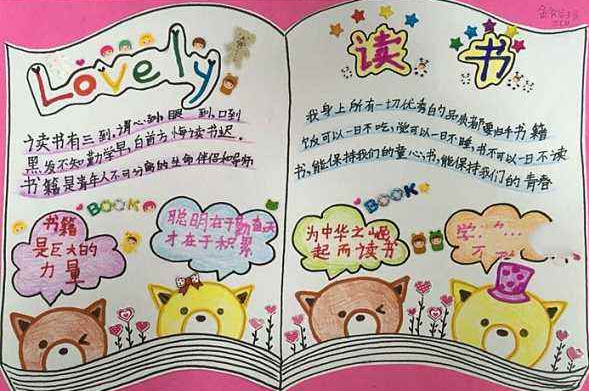 Lovely
读书有三到，谓心到，眼到，口到
黑发不知勤学早，白首方悔读书迟。
书籍是青年人不可分离的生命伴侣和导师
BOOK
书籍
是巨大的
力量
聪明在于勤奋，天
才在于积累
读书
我身上所有一切优秀的品质都要归于书籍
饭可以一日不吃，觉可以一日不睡，书不可以一日不读
书，能保持我们的童心；书，能保持我们的青春
BOOK
为中华之崛
起而读书
学